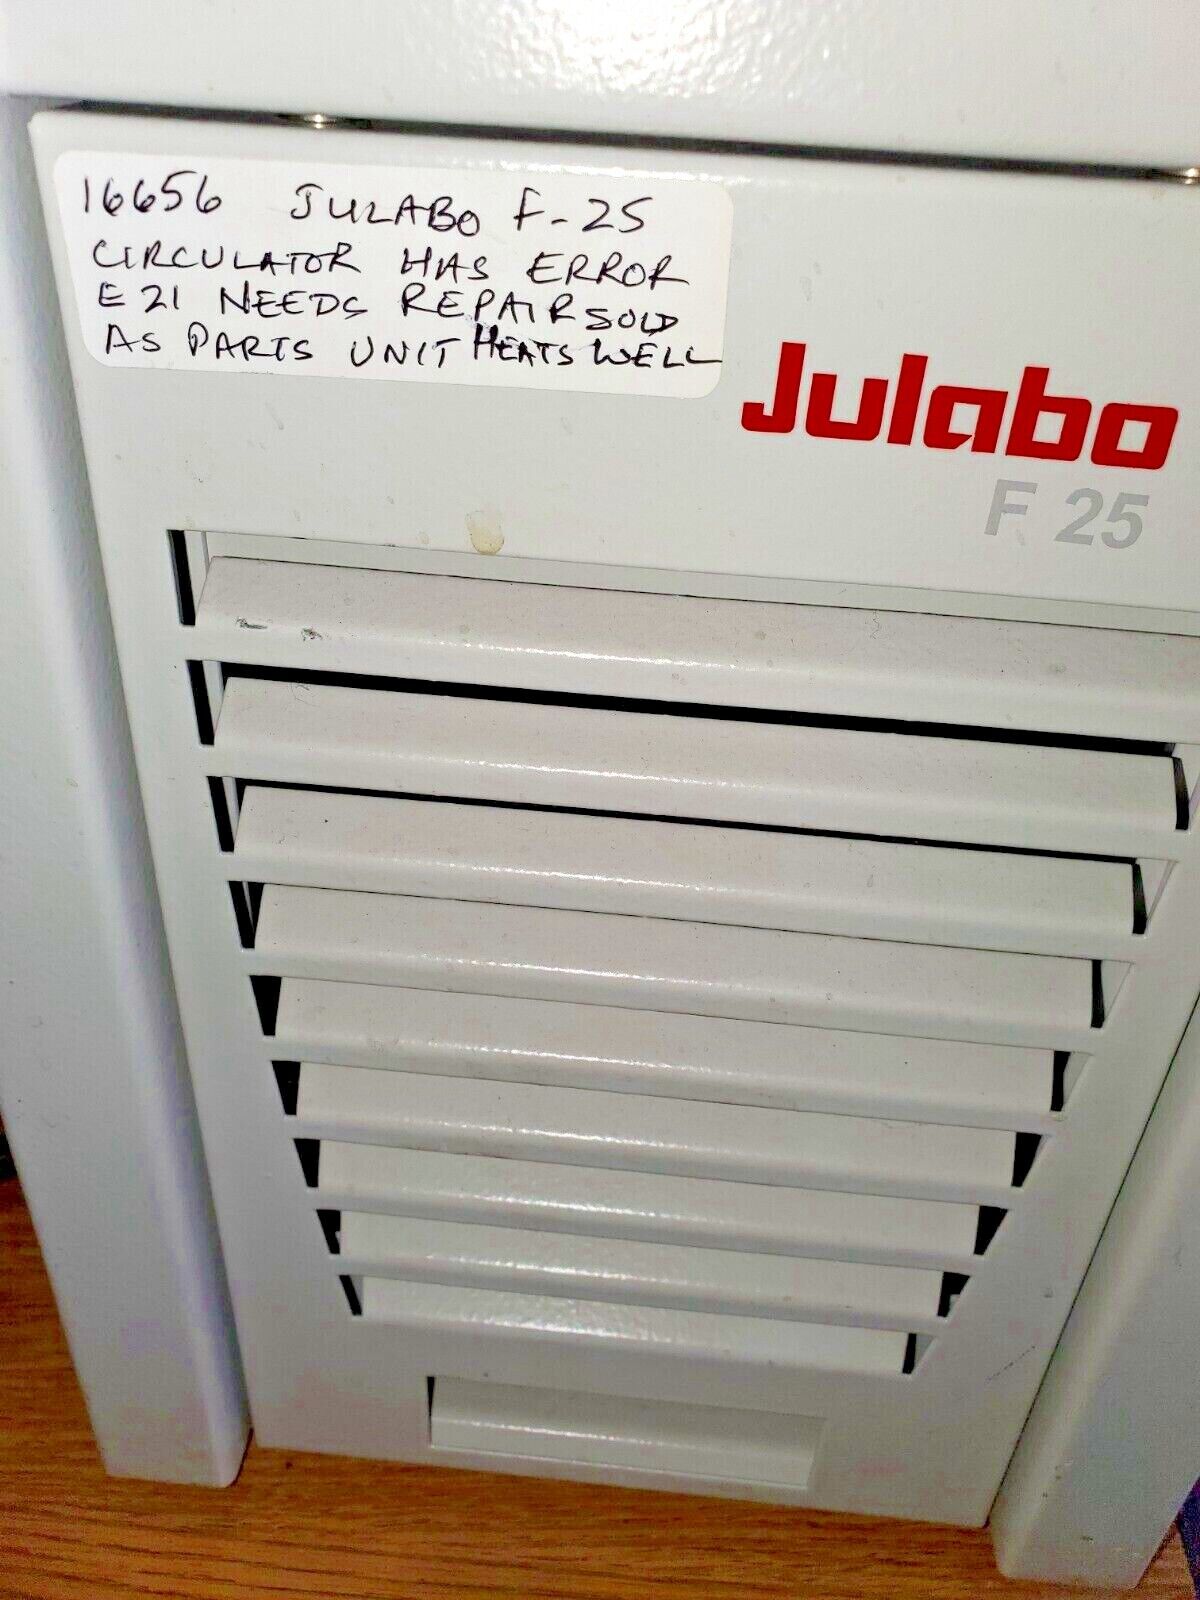 16656 JULABO F-25
CIRCULATOR HAS ERROR
E21 NEEDS REPAIR SOLD
AS PARTS UNIT HEATS WELL
Julabo
F 25